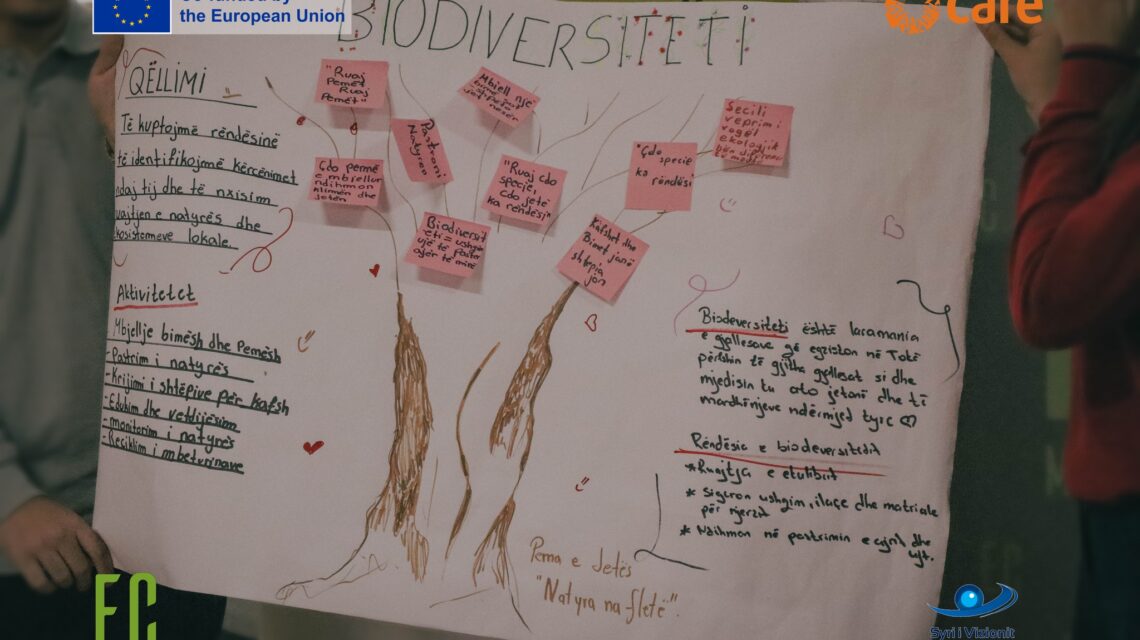 Co-funded by
the European Union
Care
BIODIVERSITETI
QËLLIMI
Të kuptojmë rëndësinë
të identifikojmë kërcënimet
ndaj tij dhe të nxisim
ruajtjen e natyrës dhe
ekosistemeve lokale.
Aktivitetet
Mbjellje bimësh dhe Pemësh
- Pastrim i natyrës
- Krijimi i shtëpive për kafsh
- Edukim dhe vetdijësim
- monitorim i natyrës
- Reciklim i mbeturinave
"Ruaj
pemët
Ruaj
Jemët"
Mbiell një
bimë sot
neser
Pastroni
Natyren
Secili
veprim i
vogël
ekologjik
bën
Çdo pemë
e mbjellur
ndihmon
klimen dhe
jeten
"Ruaj çdo
specie,
Çdo jetë
ka rëndësi"
"Çdo
specie
ka rëndësi
Biodiversit
eti = ushqim
ujë të paster
ajër të mirë
Kafshet dhe
Bimet janë
shtepia
jon
Biodeversiteti është laramania
e gjallesave që egziston në Tokë
përfshin të gjitha gjallesat si dhe
mjedisin ku ato jetonë dhe të
mardhënjeve ndërmjed tyre
Rëndësia e biodeversitetit
* Ruajtja e
* Siguron ushqim, ilaçe dhe matriale
për njerzit
* Ndihmon në pastrimin e ajrit dhe
ujt.
Pema e Jetës
"Natyra na fletë".
EC
Syri i Vizionit